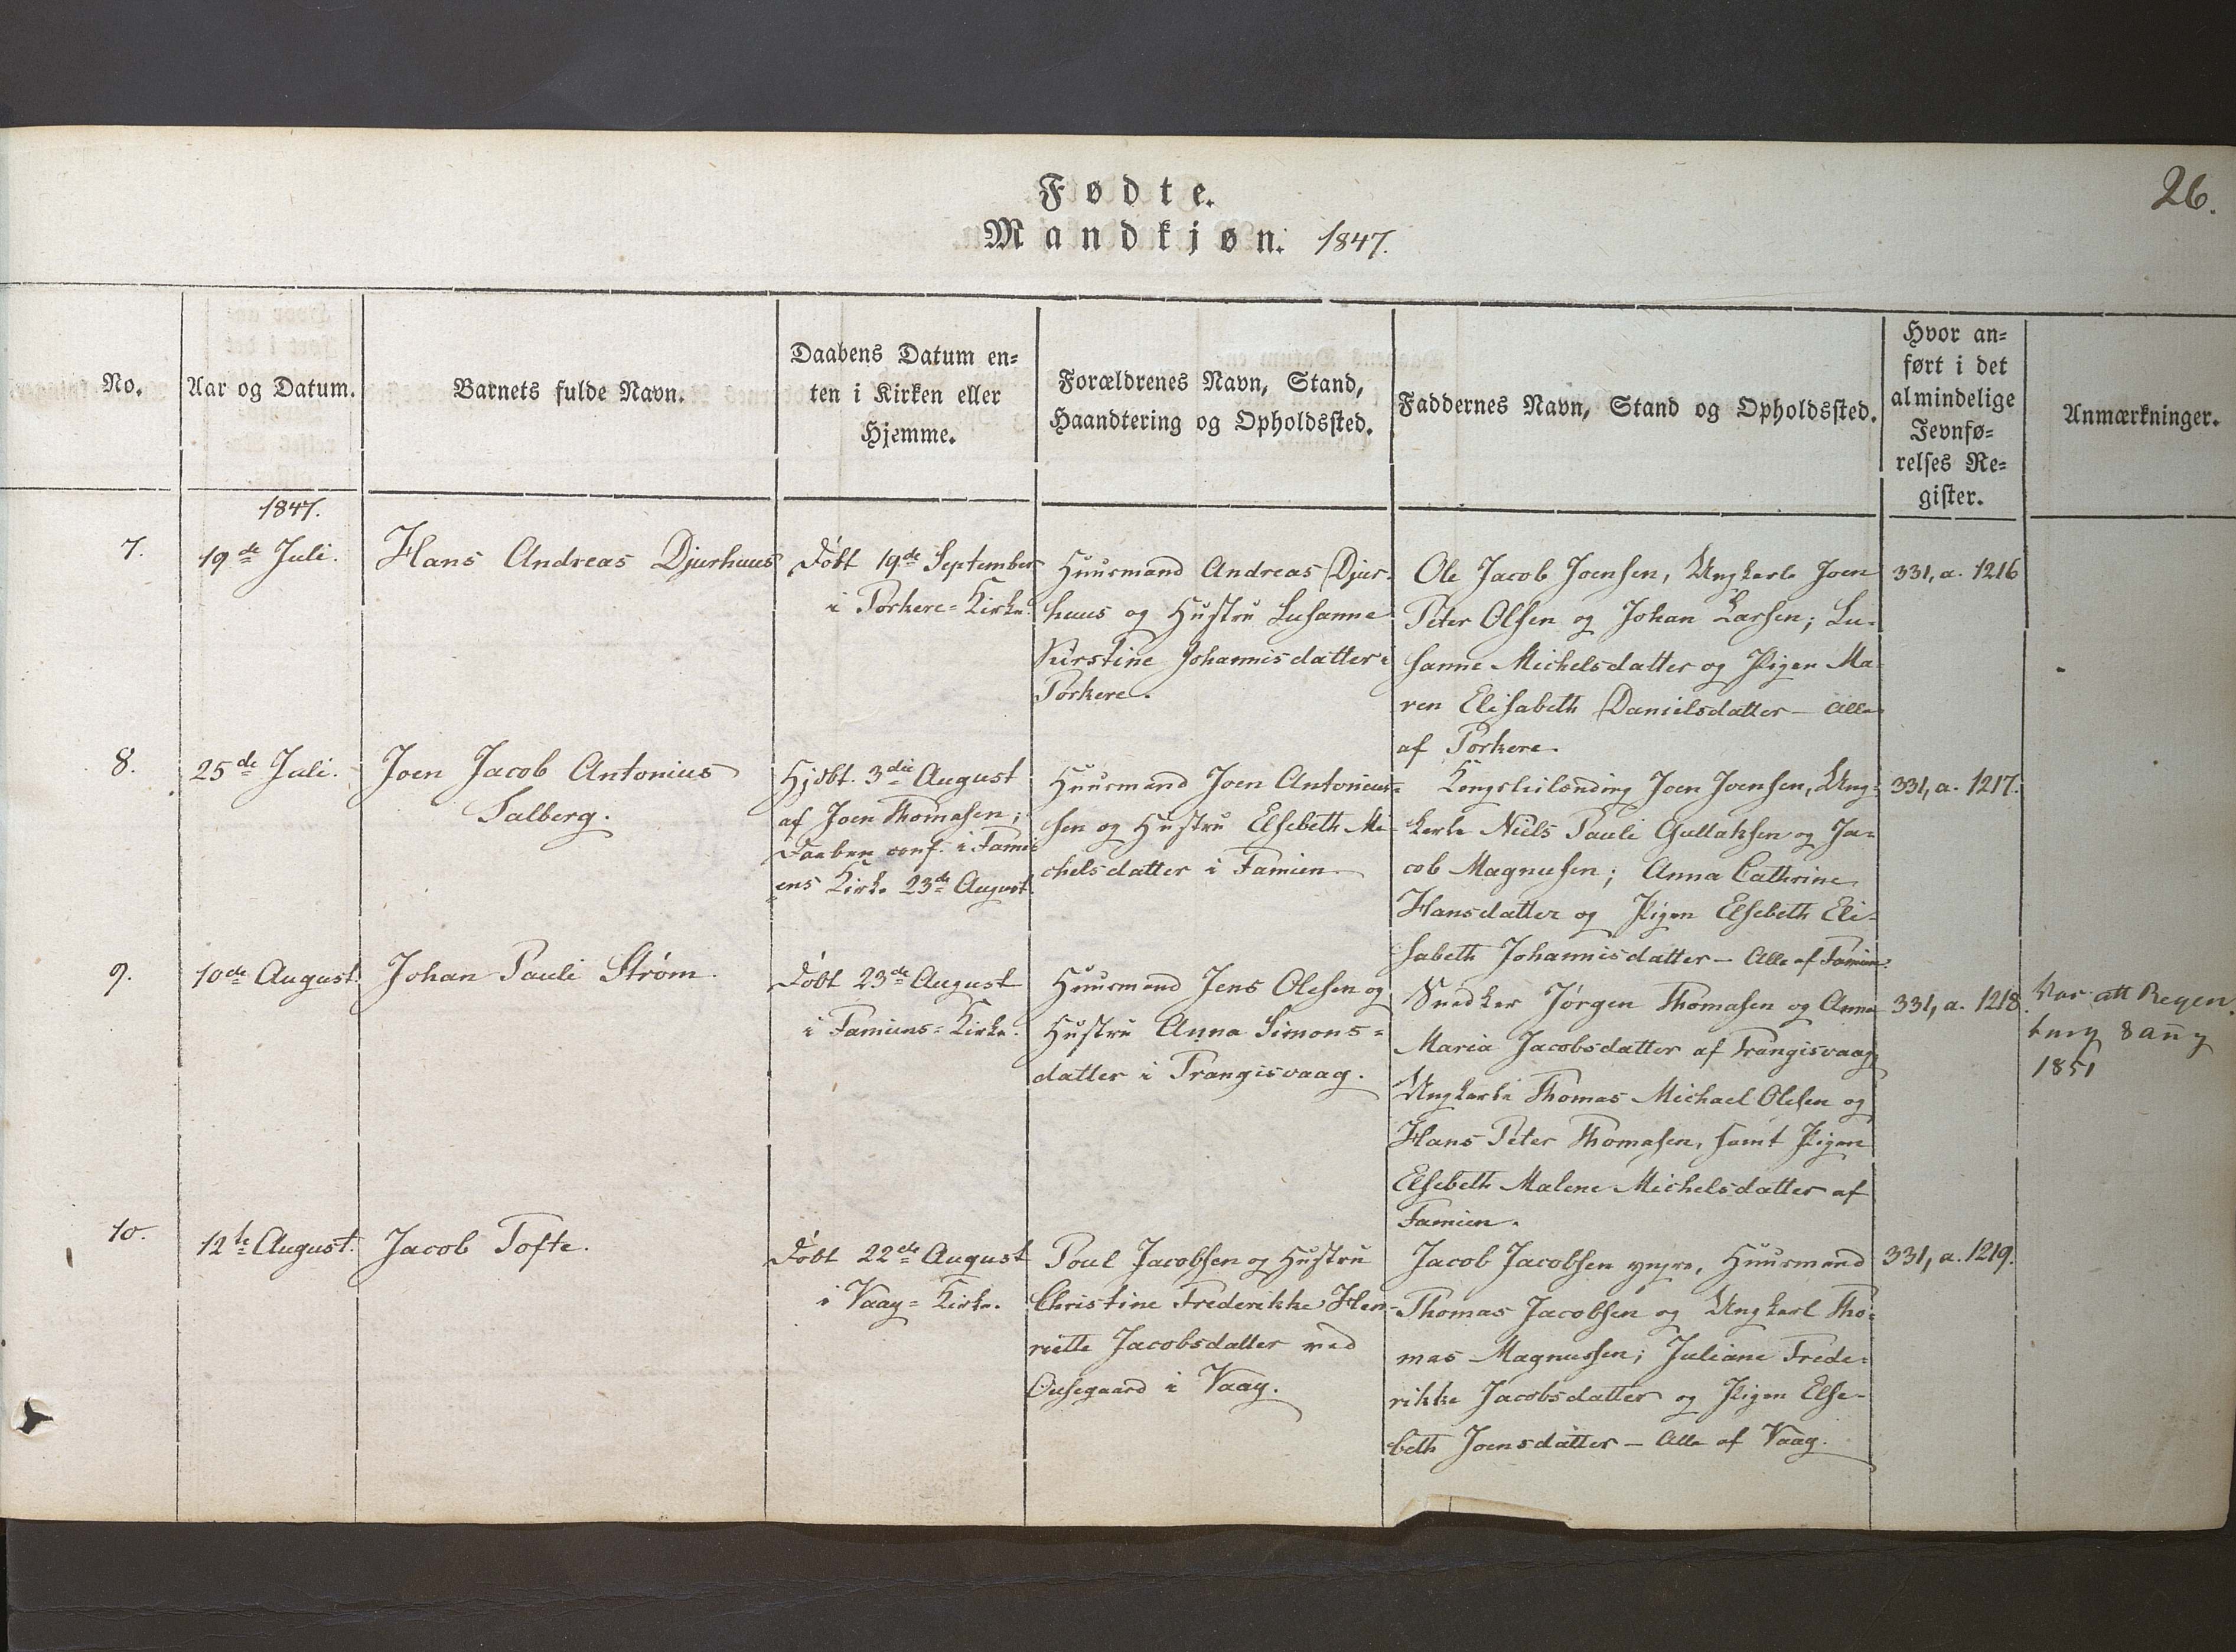 26.
Fødte.
Mandkjøn. 1847.
No.
Aar og Datum.
Barnets fulde Navn.
Daabens Datum en=
ten i Kirken eller
Hjemme.
Forældrenes Navn, Stand,
Haandtering og Opholdssted.
Faddernes Navn, Stand og Opholdssted.
Hvor an=
ført i det
almindelige
Jevnfø=
relses Re=
gister.
Anmærkninger.
1847.
7.
19de Juli.
Hans Andreas Djurhuus
Døbt 19de September
i Porkere=Kirke.
Huusmand Andreas Djur=
huus og Hustru Susanne
Kirstine Johannisdatter i
Porkere.
Ole Jacob Joensen, Ungkarle Joen
Peter Olsen og Johan Larsen; Su=
sanne Michelsdatter og Pigen Ma=
ren Elisabeth Danielsdatter – Alle
af Porkere.
331, a. 1216
8.
25de Juli.
Joen Jacob Antonius
Salberg.
Hjdbt. 3die August
af Joen Thomasen;
Daaben conf. i Fami=
ens Kirke 23de August.
Huusmand Joen Antonius=
sen og Hustru Elsebeth Mi=
chelsdatter i Famien.
Kongsleilænding Joen Joensen, Ung=
karle Niels Pauli Gullaksen og Ja=
cob Magnusen; Anna Cathrine
Hansdatter og Pigen Elsebeth Eli=
sabeth Johannisdatter – Alle af Famien.
331, a. 1217.
9.
10de August.
Johan Pauli Strøm.
Døbt 23de August
i Famiens=Kirke.
Huusmand Jens Olesen og
Hustru Anna Simons=
datter i Trangisvaag.
Snedker Jørgen Thomasen og Anna
Maria Jacobsdatter af Trangisvaag,
Ungkarle Thomas Michael Olesen og
Hans Peter Thomasen, samt Pigen
Elsebeth Malene Michelsdatter af
Famien.
331, a. 1218.
8 aug
1851
10.
12te August.
Jacob Tofte.
Døbt 22de August
i Vaag=Kirke.
Poul Jacobsen og Hustru
Christine Frederikke Hen=
riette Jacobsdatter ved
i Vaag.
Jacob Jacobsen yngre, Huusmand
Thomas Jacobsen og Ungkarl Tho=
mas Magnussen; Juliane Frede=
rikke Jacobsdatter og Pigen Else=
beth Joensdatter – Alle af Vaag.
331, a. 1219.